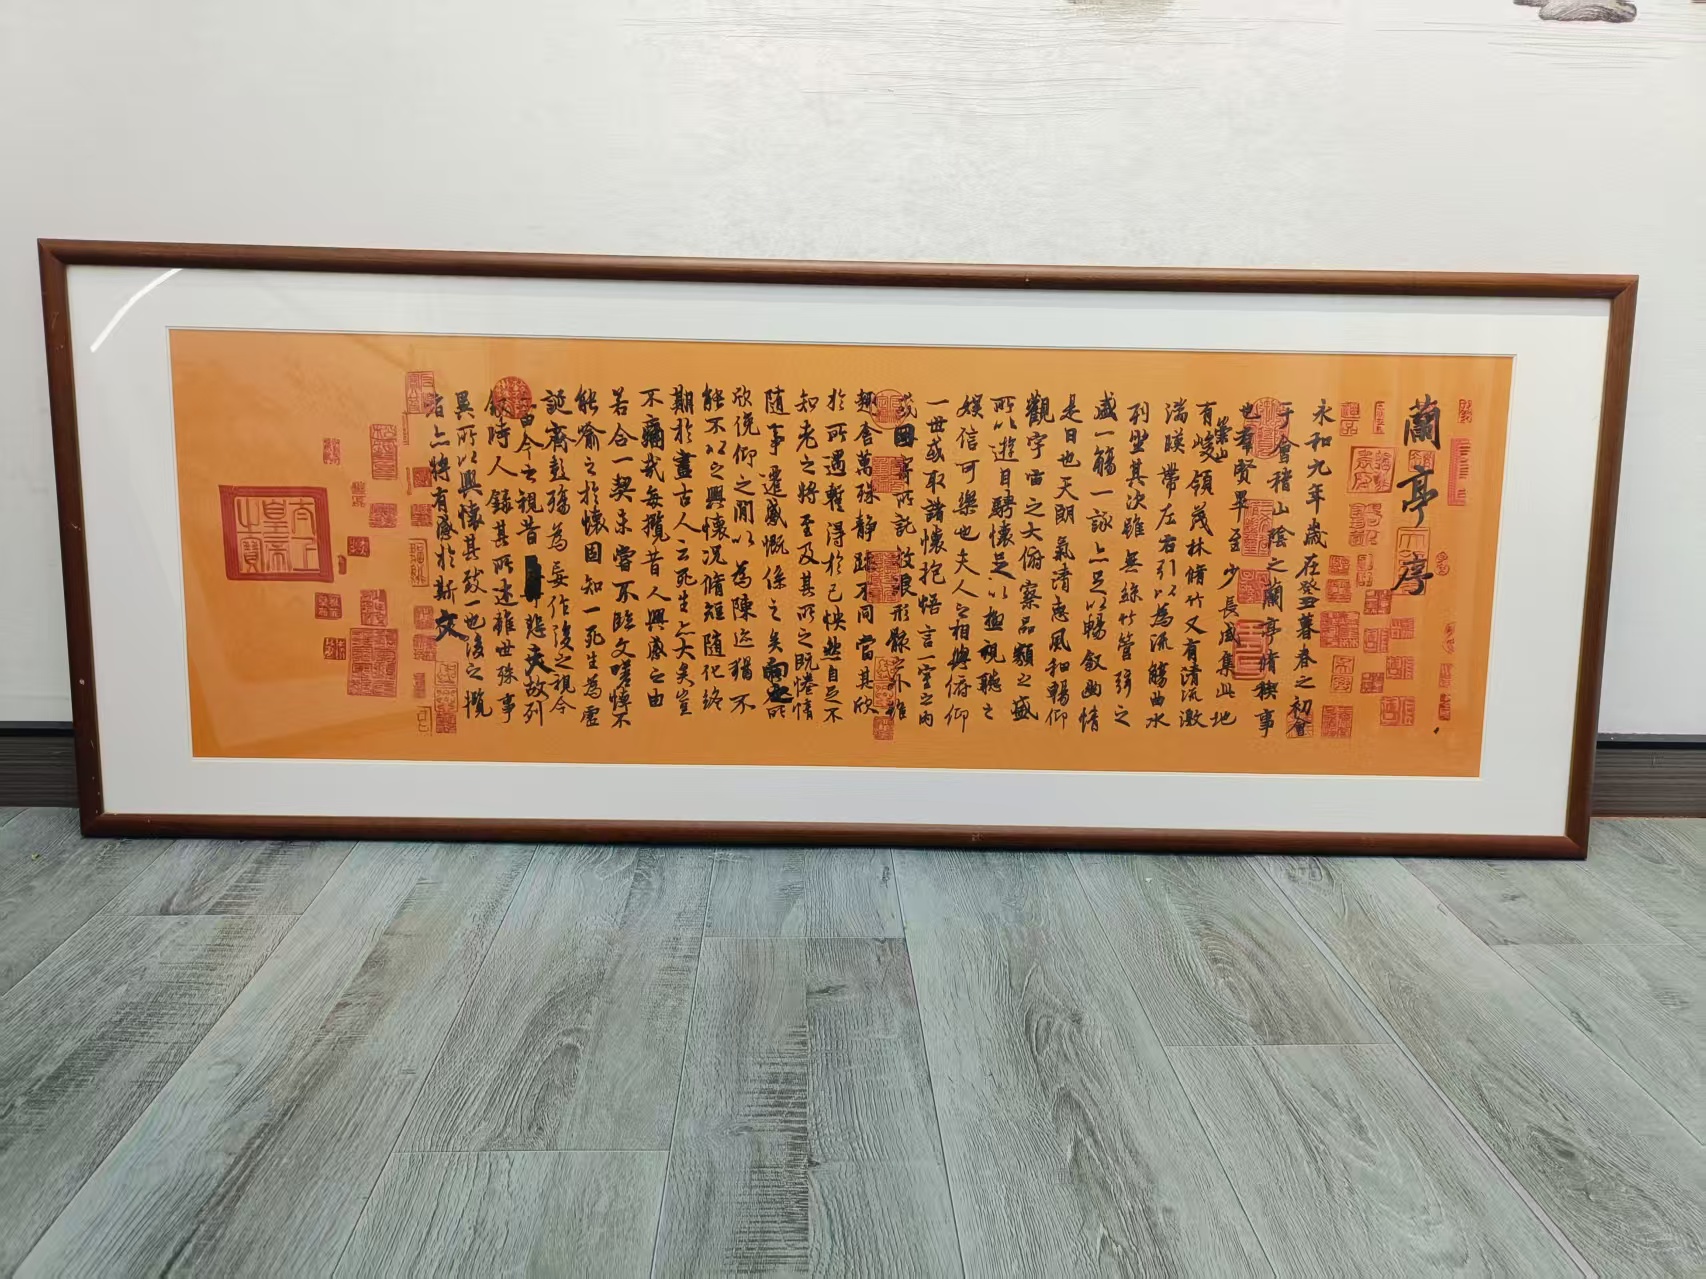 蘭亭序
永和九年歲在癸丑暮春之初會
于會稽山陰之蘭亭脩稧事
也羣賢畢至少長咸集此地
有崇山峻領茂林脩竹又有清流激
湍暎帶左右引以為流觴曲水
列坐其次雖無絲竹管弦之
盛一觴一詠亦足以暢敘幽情
是日也天朗氣清惠風和暢仰
觀宇宙之大俯察品類之盛
所以遊目騁懷足以極視聽之
娛信可樂也夫人之相與俯仰
一世或取諸懷抱悟言一室之內
或因寄所託放浪形骸之外雖
趣舍萬殊靜躁不同當其欣
於所遇蹔得於己怏然自足不
知老之將至及其所之既惓情
隨事遷感慨係之矣向之所
欣俛仰之閒以為陳迹猶不
能不以之興懷況脩短隨化終
期於盡古人云死生亦大矣豈
不痛哉每攬昔人興感之由
若合一契未嘗不臨文嗟悼不
能喻之於懷固知一死生為虛
誕齊彭殤為妄作後之視今
亦由今之視昔悲夫故列
敘時人錄其所述雖世殊事
異所以興懷其致一也後之攬
者亦將有感於斯文
太上皇帝之寶